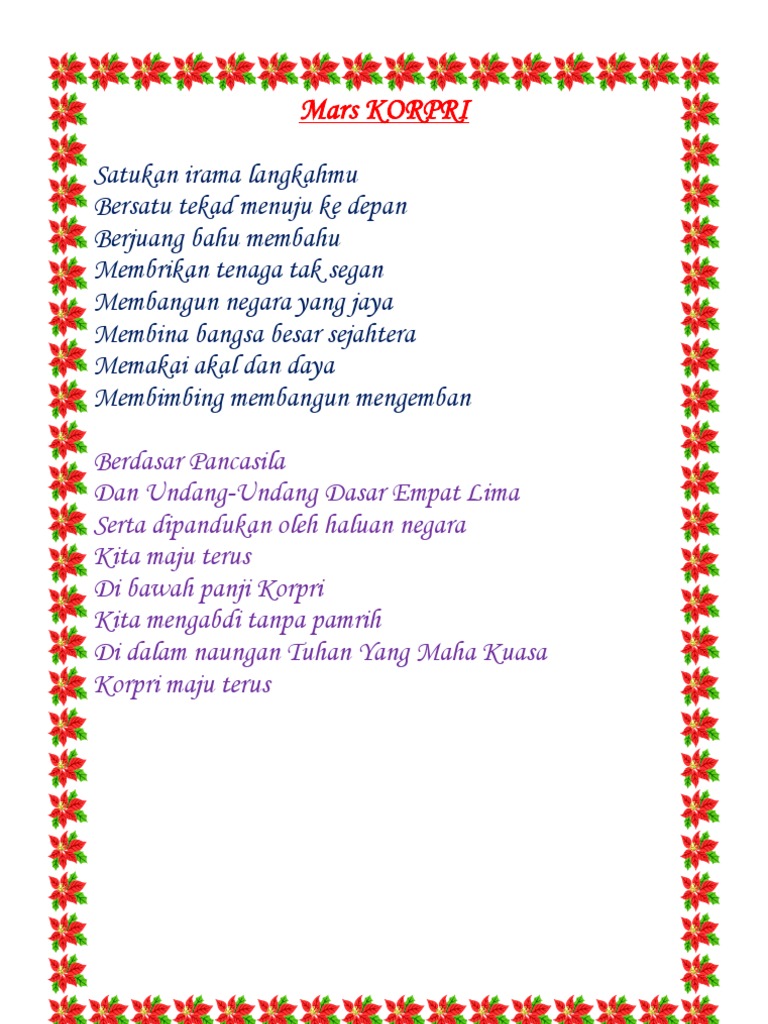 Mars KORPRI
Satukan irama langkahmu
Bersatu tekad menuju ke depan
Berjuang bahu membahu
Membrikan tenaga tak segan
Membangun negara yang jaya
Membina bangsa besar sejahtera
Memakai akal dan daya
Membimbing membangun mengemban
Berdasar Pancasila
Dan Undang-Undang Dasar Empat Lima
Serta dipandukan oleh haluan negara
Kita maju terus
Di bawah panji Korpri
Kita mengabdi tanpa pamrih
Di dalam naungan Tuhan Yang Maha Kuasa
Korpri maju terus